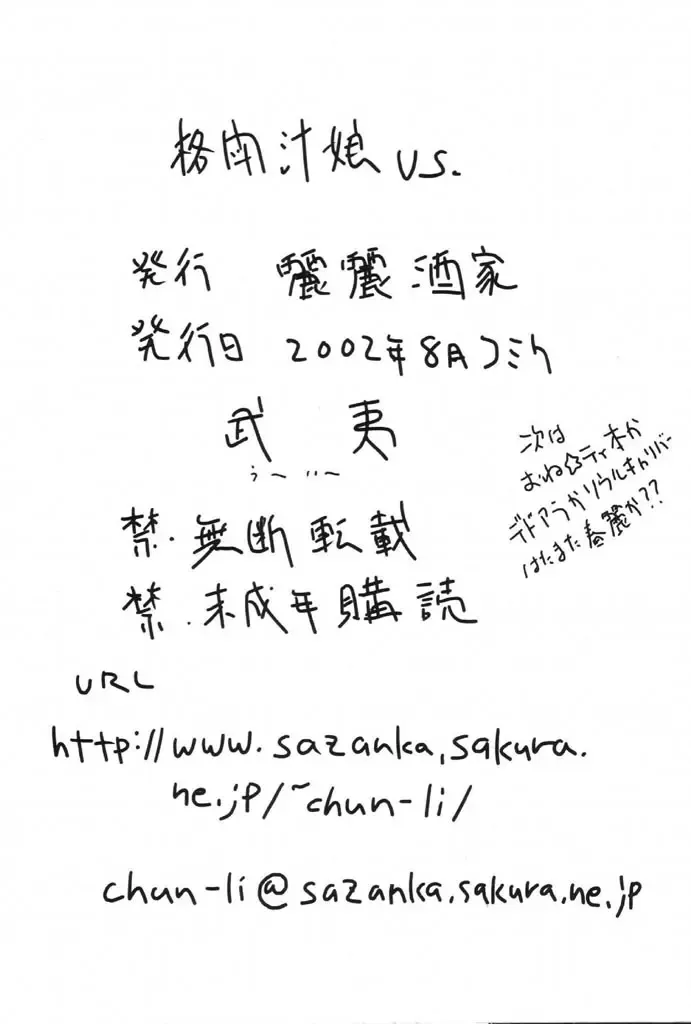 格肉汁娘 VS.
発行 麗麗酒家
発行日 2002年8月コミケ
武夷
うーいー
次は
おね☆ティ本か
デドアラかソウルキャリバー
はたまた春麗か??
禁・無断転載
禁・未成年購読
URL
http://www.sazanka.sakura.
ne.jp/~chun-li/
chun-li@sazanka.sakura.ne.jp